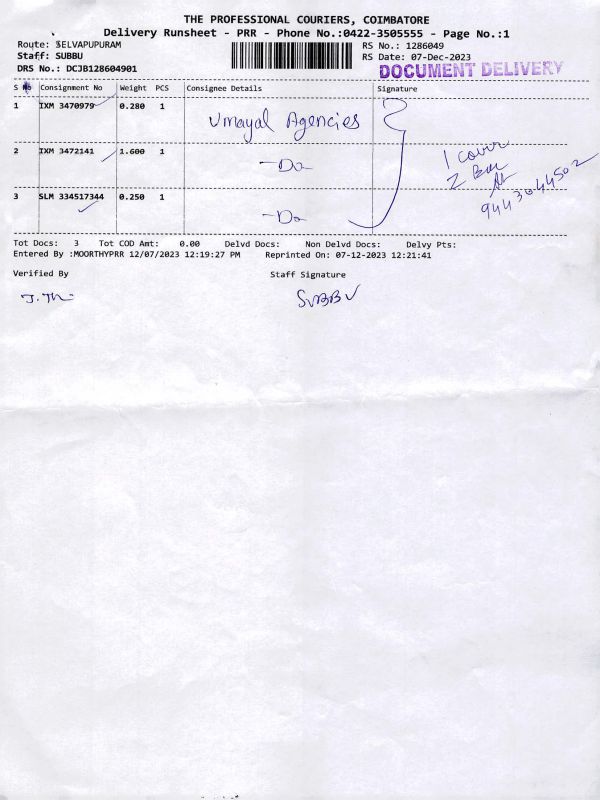 THE PROFESSIONAL COURIERS, COIMBATORE
Delivery Runsheet - PRR - Phone No.:0422-3505555 - Page No.:1
Route: SELVAPUPURAM
RS No.: 1286049
Staff: SUBBU
RS Date: 07-Dec-2023
DRS No.: DCJB128604901
DOCUMENT DELIVERY
S No Consignment No Weight PCS Consignee Details Signature
1 IXM 3470979 0.280 1 Umayal Agencies
2 IXM 3472141 1.600 1 -Do-
1 cover
2 Box
9443044502
3 SLM 334517344 0.250 1 -Do-
Tot Docs: 3 Tot COD Amt: 0.00 Delvd Docs: Non Delvd Docs: Delvy Pts:
Entered By :MOORTHYPRR 12/07/2023 12:19:27 PM Reprinted On: 07-12-2023 12:21:41
Verified By Staff Signature
SUBBU